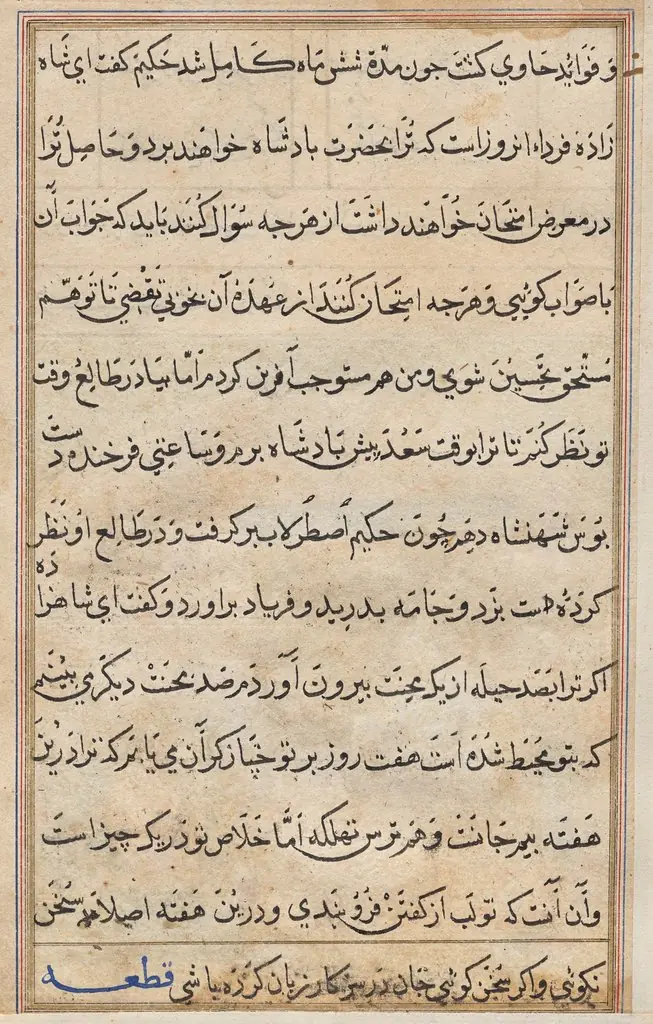 و فوائد حاوي كشت جون مدّة شش ماه كامل شد حكيم كفت اي شاه
زاده فرداء انروزاست كه ترا بحضرت بادشاه خواهند برد و حاصل ترا
در معرض امتحان خواهند داشت از هرجه سؤال كنند بايد كه جواب آن
باصواب كوئيي و هرجه امتحان كنند از عهدهٔ آن بخوبي تقضي تا توهم
مستحق تحسين شوي و من هم مستوجب آفرين كردم امّا بيا در طالع وقت
تو نظر كنم تا ترا بوقت سعد پيش بادشاه برم و ساعتي فرخنده دست
بوس شهنشاه دهم چون حكيم اصطرلاب بركرفت و در طالع او نظر
كرد دست بزد و جامه بدريد و فرياد براورد و كفت اي شاهزاده
اكر ترا بصد حيله از يك محنت بيرون آوردم صد محنت ديكر مي بينم
كه بتو محيط شده است هفت روز بر تو چنان كران مي يابم كه ترا درين
هفته بيم جانت و هم ترس تهلكه امّا خلاص تو در يك چيز است
و آن آنت كه تو لب از كفتن فرو بندي و درين هفته اصلا سخن
نكوئي و اكر سخن كوئي جان در سر كار زبان كرده باشي قطعه